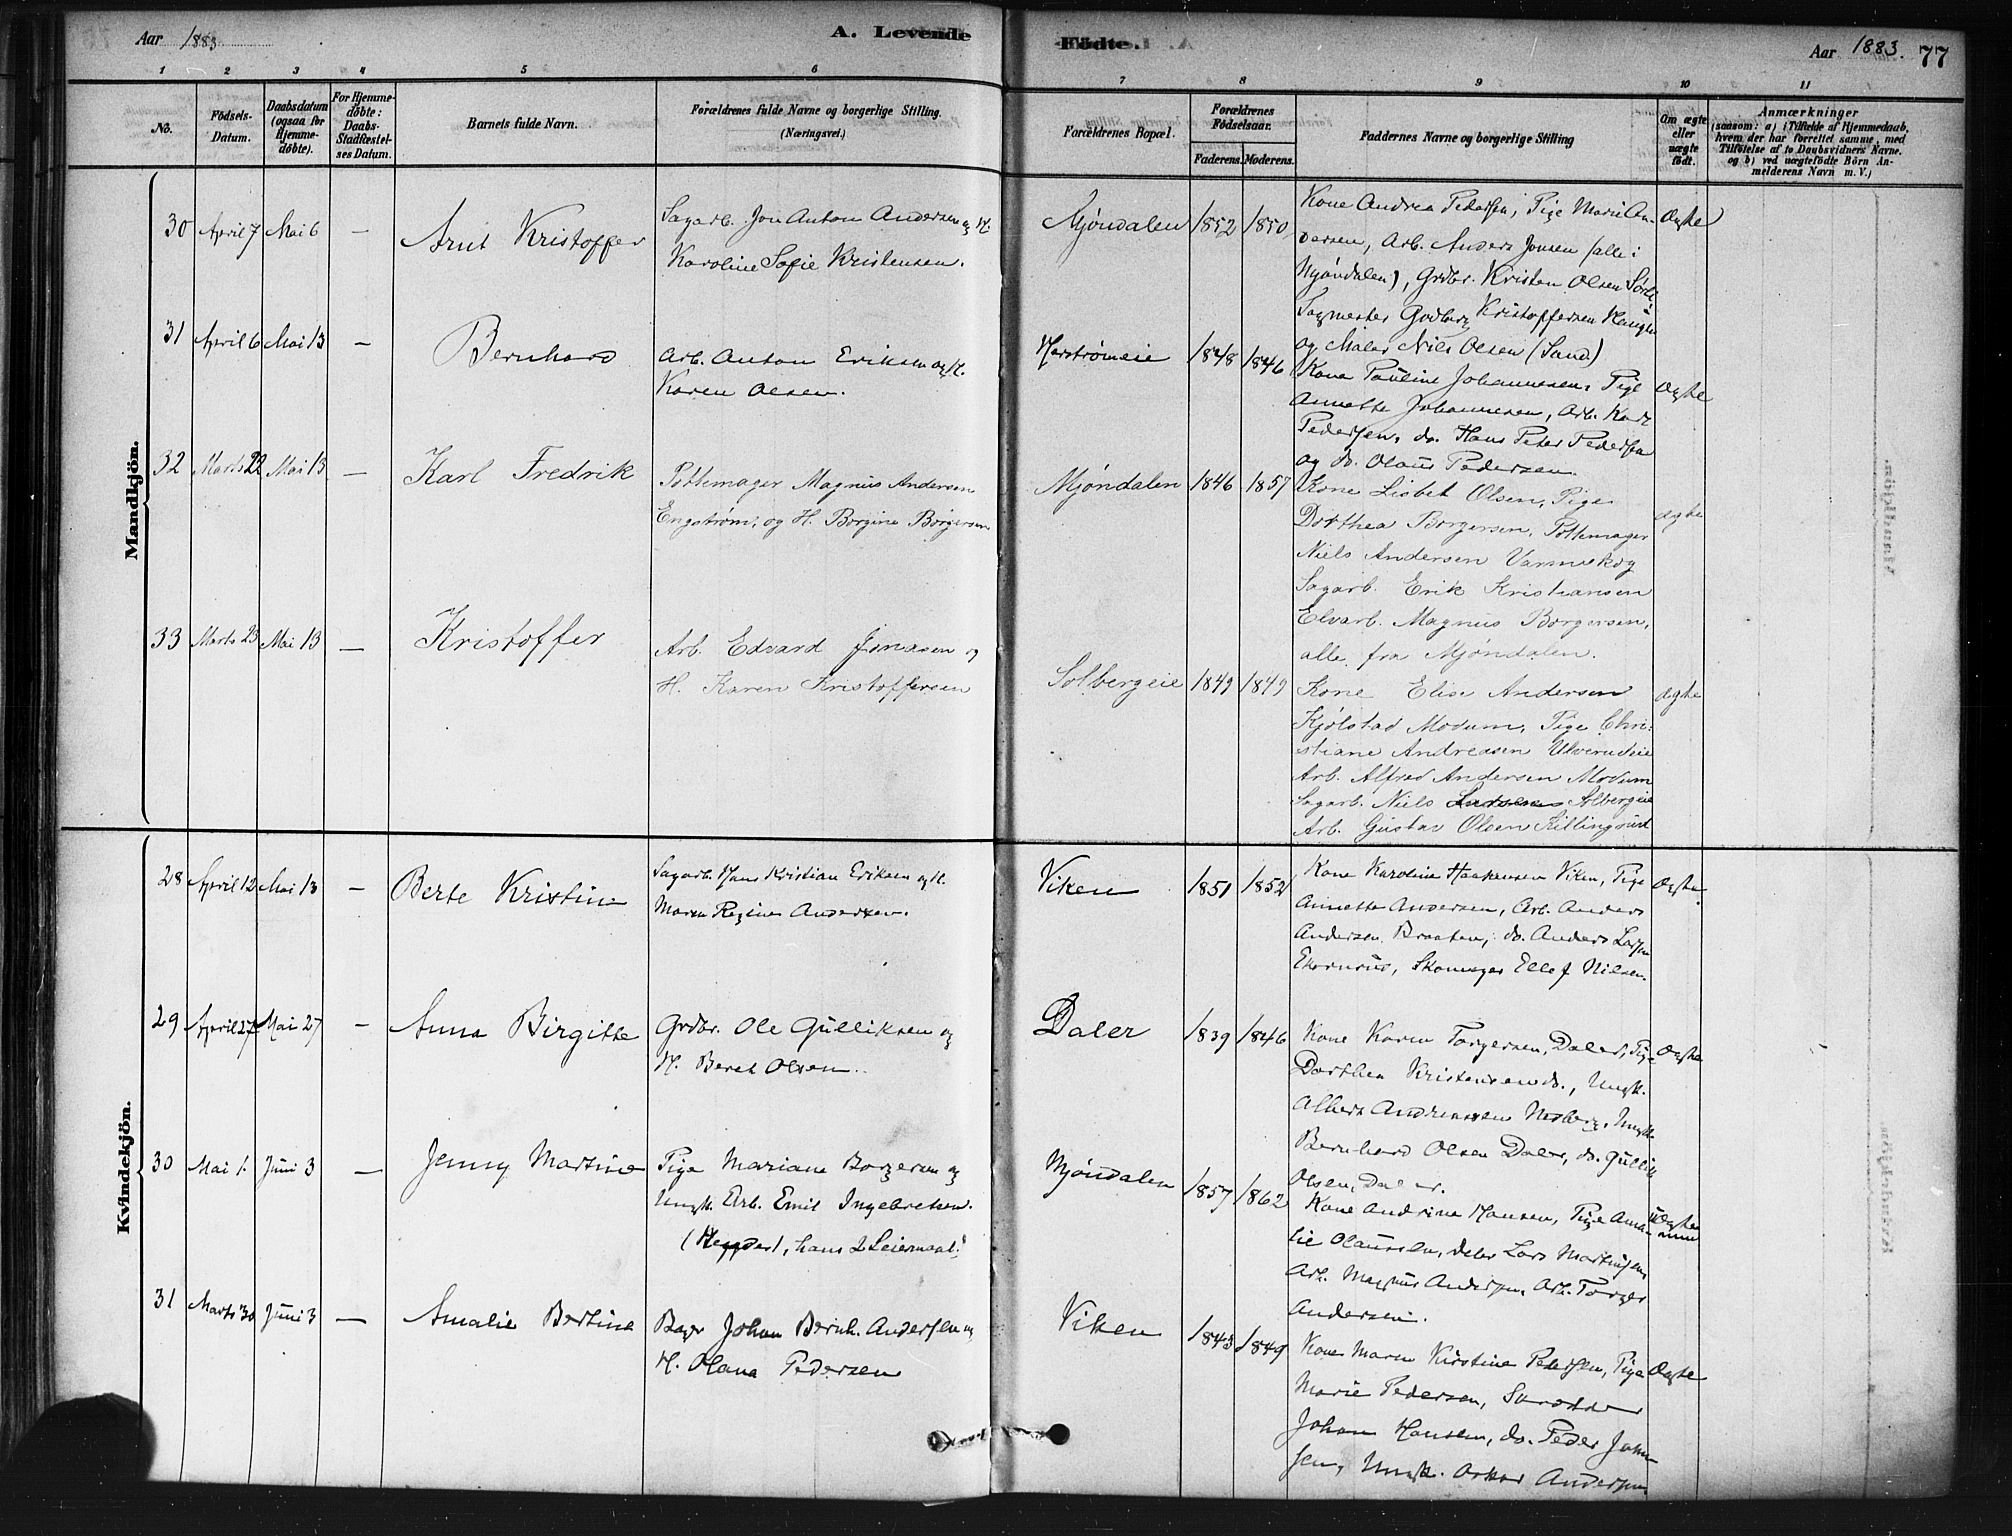 Aar 1883
A. Levende
Fødte.
Aar 1883. 77
1 2 3 4 5 6 7 8 9 10 11
No.
Fødsels-
Datum.
Daabsdatum
(ogsaa for
Hjemme-
døbte).
For Hjemme-
døbte:
Daabs-
Stadfæstel-
ses Datum.
Barnets fulde Navn.
Forældrenes fulde Navne og borgerlige Stilling.
(Næringsvei.)
Forældrenes Bopæl.
Forældrenes
Fødselsaar.
Faderens. Moderens.
Faddernes Navne og borgerlige Stilling
Om ægte
eller
uægte
født.
Anmærkninger
(saasom: a) i Tilfælde af Hjemmedaab,
hvem der har forrettet samme, med
Tilføielse af to Daabsvidners Navne.
og b) ved uægtefødte Börn An-
melderens Navn m. V.)
Mandkjön.
30 April 7 Mai 6 — Arnt Kristoffer
Sagarb. Jon Anton Andersen og H.
Karoline Sofie Kristensen.
Mjøndalen 1852 1850
Kone Andrea Pedersen, Pige Marie An-
dersen, Arb. Anders Jonsen (alle i
Mjøndalen), Grdbr. Kristen Olsen
Sagmester Kristoffersen Haugen
og Maler Nils Olsen (Sand)
Ægte
31 April 6 Mai 13 — Bernhard
Arb. Anton Eriksen og H.
Karen Olsen.
1848 1846
Kone Pauline Johannesen, Pige
Annette Johannesen, Arb. Karl
Pedersen, do. Hans Peter Pedersen
og do. Olaus Pedersen
Ægte
32 Marts 22 Mai 13 — Karl Fredrik
Pottemager Magnus Andersen
Engstrøm, og H. Borgine Borgersen
Mjøndalen 1846 1857
Kone Lisbet Olsen, Pige
Dorthea Borgersen, Pottemager
Niels Andersen Varmeskog
Sagarb. Erik Kristiansen
Elvarb. Magnus Borgersen,
alle fra Mjøndalen.
ægte
33 Marts 23 Mai 13 — Kristoffer
Arb. Edvard Jonasen og
H. Karen Kristoffersen
Solbergeie 1849 1849
Kone Elise Andersen
Kjølstad Modum, Pige Chri-
stiane Andreasen Ulverudeie
Arb. Alfred Andersen Modum
Sagarb. Niels Larsen Solbergeie
Arb. Gustav Olsen Killingrud
ægte
Kvindekjön.
28 April 12 Mai 13 — Berte Kristine
Sagarb. Hans Kristian Eriksen og H.
Maren Regine Andersen.
Viken 1851 1852
Kone Karoline Haakensen Viken, Pige
Annette Andersen, Arb. Anders
Andersen Braaten, do. Anders Larsen
Ekornrud, Skomager Ellef Nilsen.
Ægte.
29 April 27 Mai 27 — Anna Birgitte
Grdbr. Ole Gulliksen og
H. Beret Olsen.
Daler 1839 1846
Kone Karen Torgersen, Daler, Pige
Dorthea Kristensen do., Ungk.
Albert Andreassen Ungk.
Bernhard Olsen Daler, do. Gullik
Olsen, Daler.
Ægte
30 Mai 1. Juni 3 — Jenny Martine
Pige Mariane Borgersen og
Ungk. Arb. Emil Ingebretsen.
hans 2 Leiermaal.
Mjøndalen 1857 1862
Kone Andrine Hansen, Pige Ama-
lie Olaussen, Lars Martinsen,
Arb. Magnus Andersen, Arb. Torger
Andersen.
Uægte
31 Marts 30 Juni 3 — Amalie Bertine
Bager Johan Bernh. Andersen og
H. Olana Pedersen
Viken 1843 1849
Kone Maren Kirstine Petersen, Pige
Marie Pedersen, Skrædder
Johan Hansen, do. Peder John-
sen, Ungk. Oskar Andersen.
Ægte